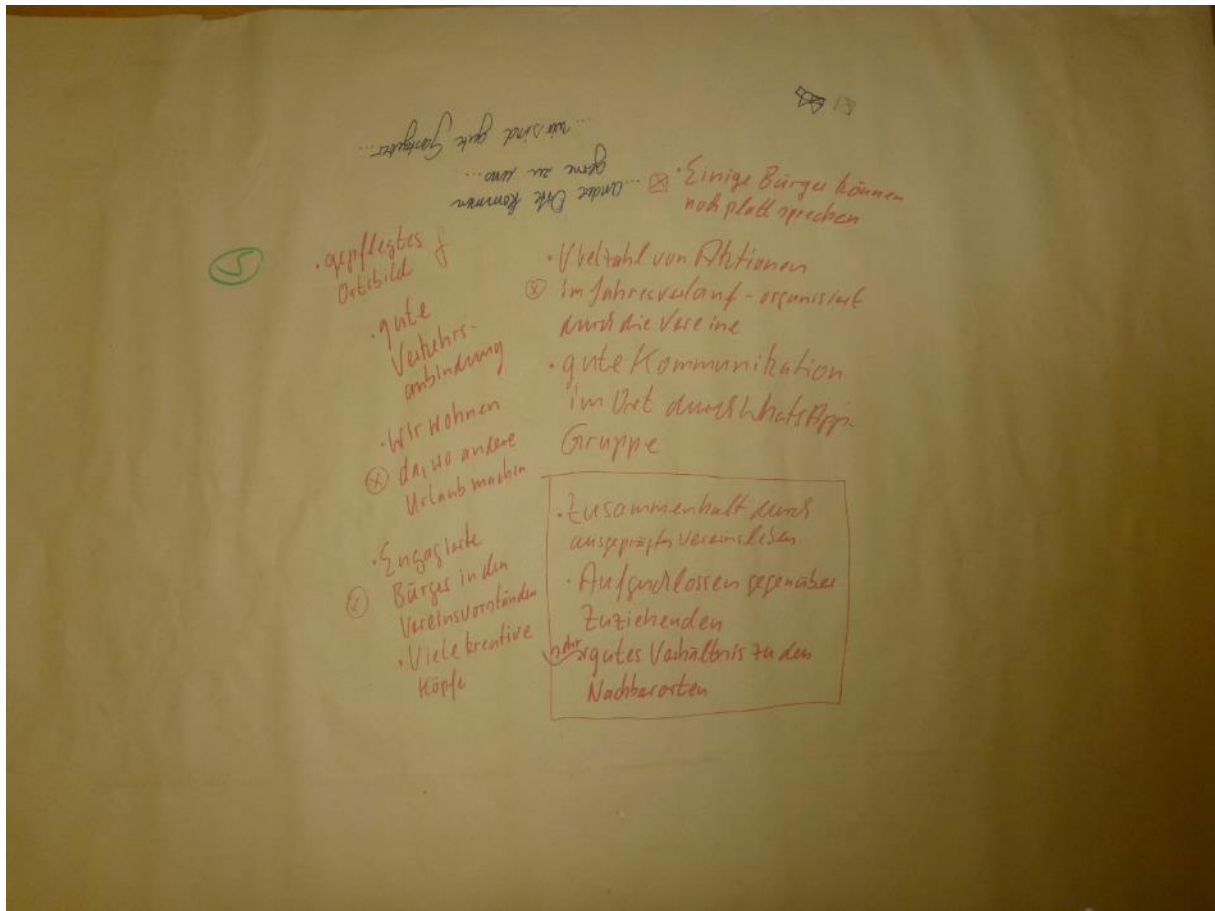 ...wir sind gute Gastgeber...
...andere Orte kommen
gerne zu uns...
• Einige Bürger können
noch platt sprechen
5
• gepflegtes
Ortsbild
• gute
Verkehrs-
anbindung
• Wir wohnen
da, wo andere
Urlaub machen
• Engagierte
Bürger in den
Vereinsvorständen
• Viele kreative
Köpfe
• Vielzahl von Aktionen
im Jahresverlauf - organisiert
durch die Vereine
• gute Kommunikation
im Ort durch WhatsApp-
Gruppe
• Zusammenhalt durch
ausgeprägtes Vereinsleben
• Aufgeschlossen gegenüber
Zuziehenden
sehr gutes Verhältnis zu den
Nachbarorten